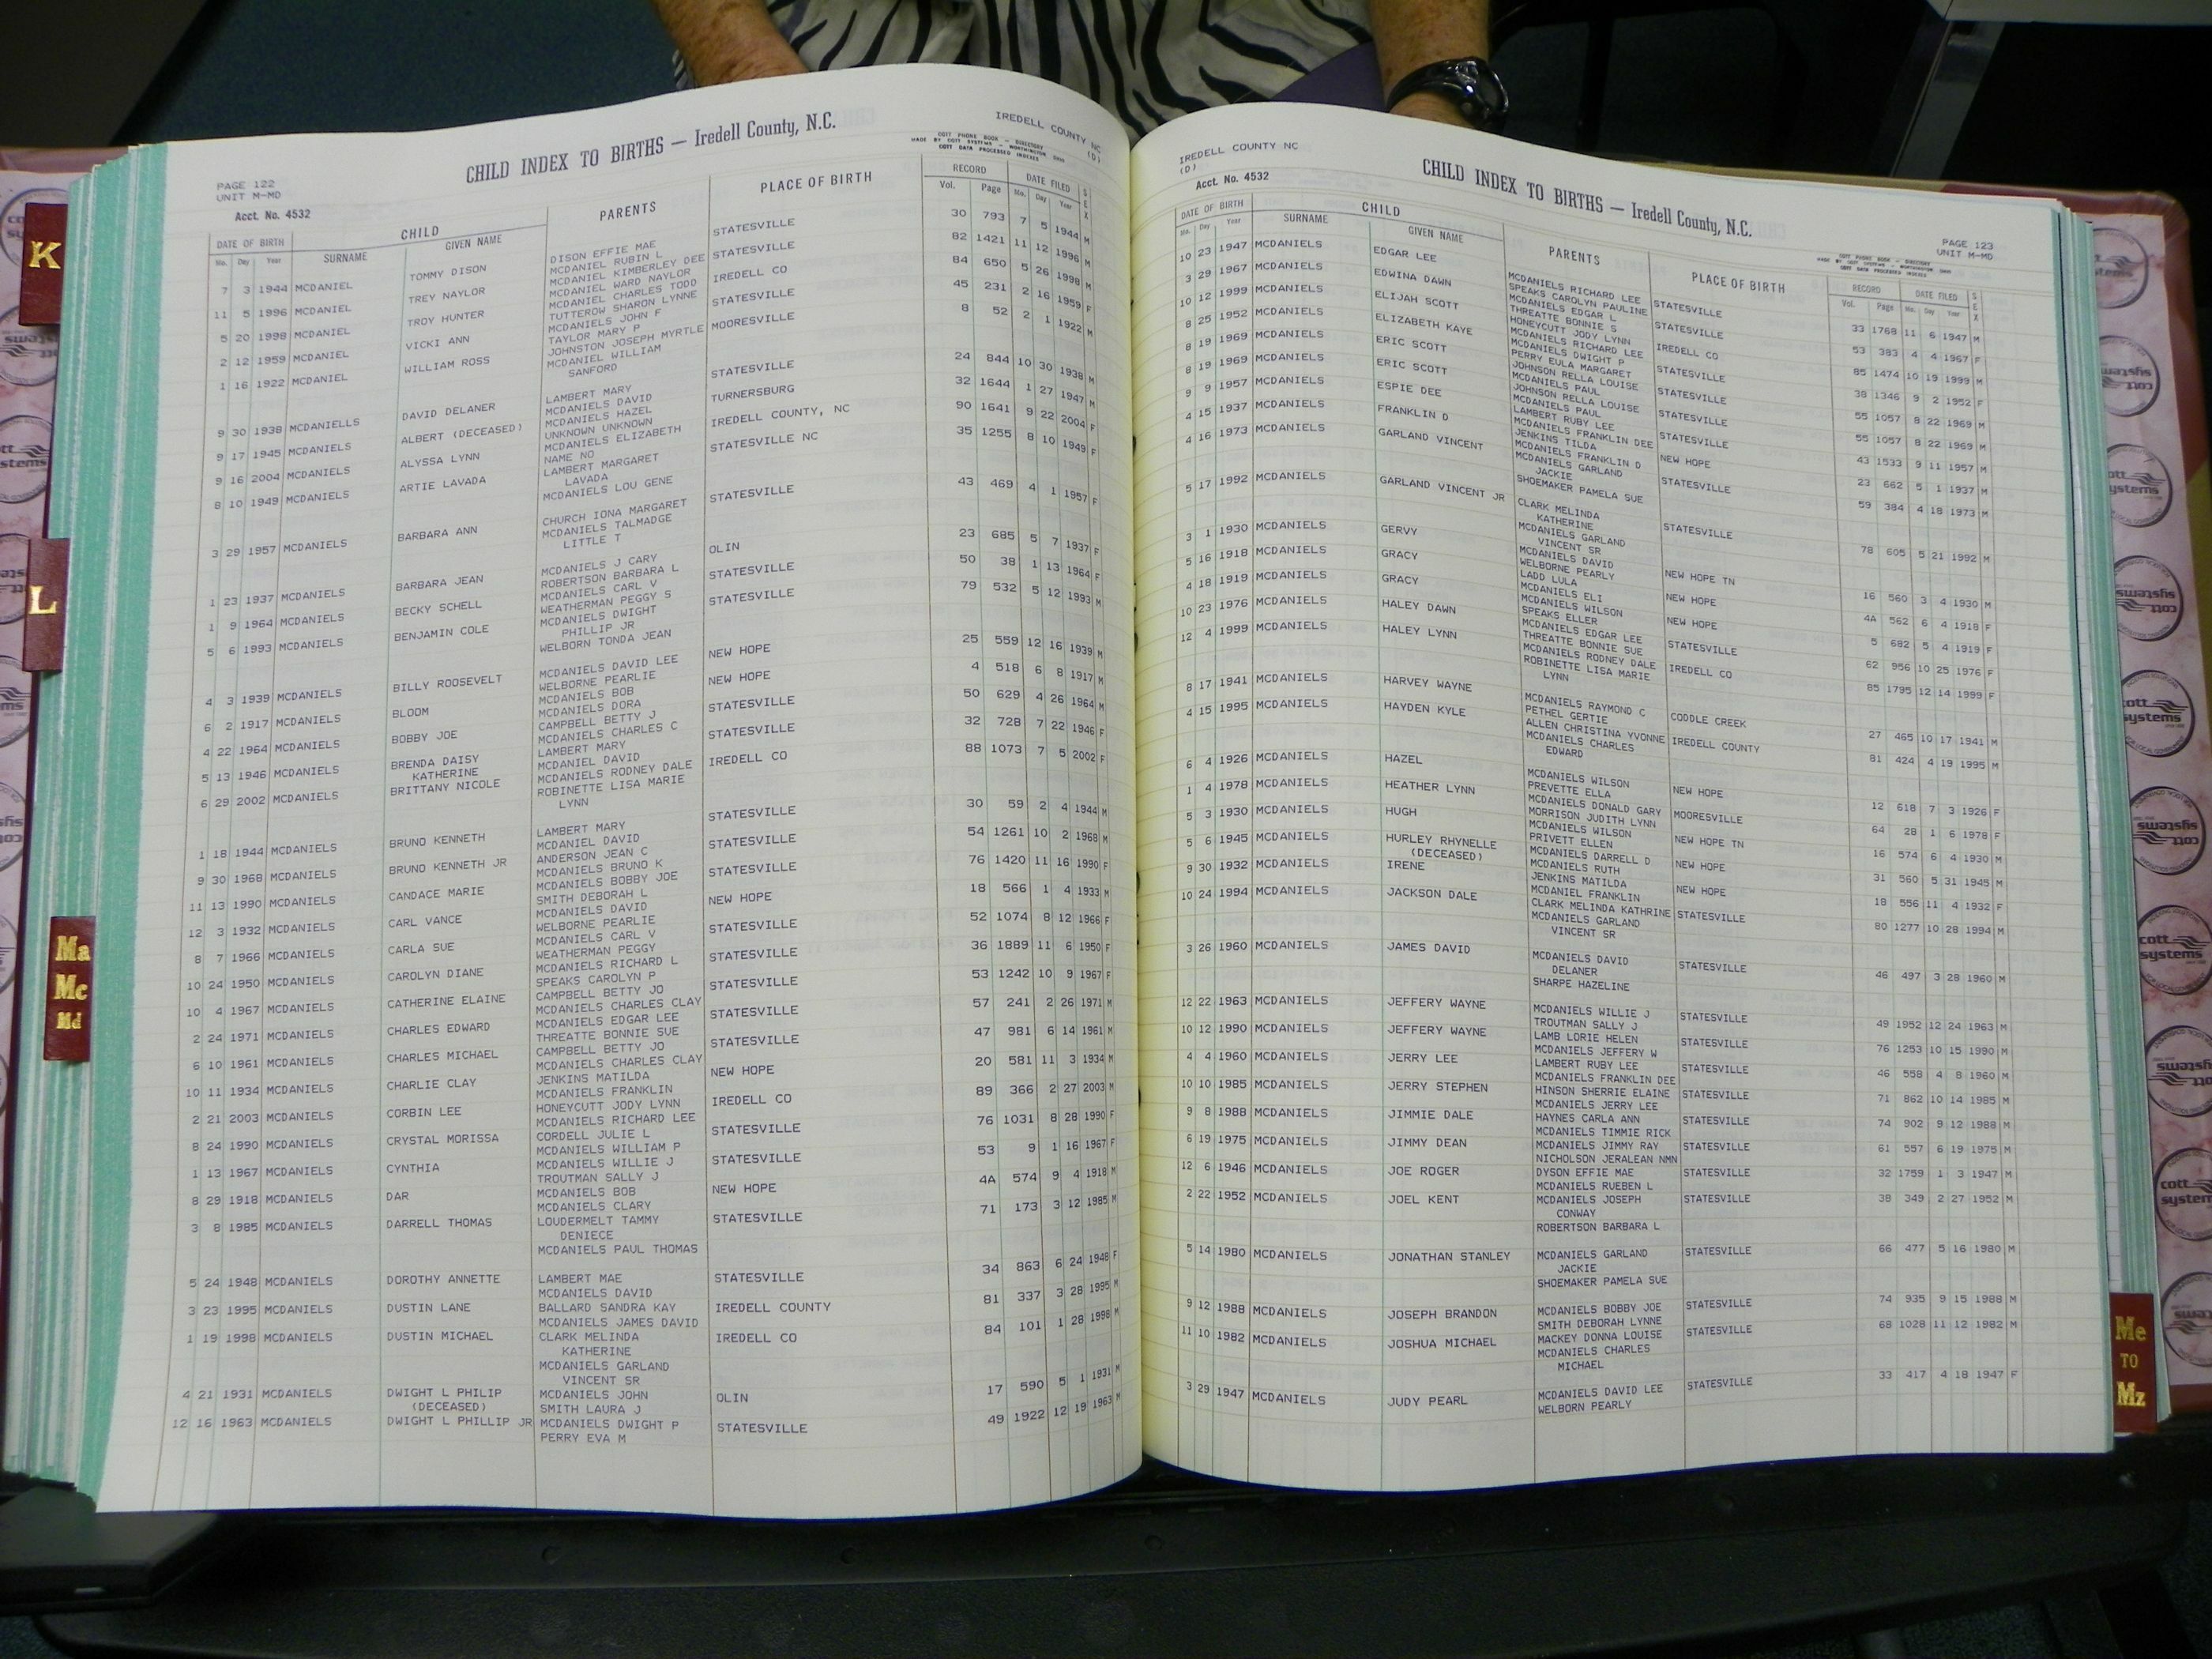 IREDELL COUNTY NC
(D)
CHILD INDEX TO BIRTHS — Iredell County, N.C.
COTT PHONE BOOK - DIRECTORY
MADE BY COTT SYSTEMS - WORTHINGTON OHIO
COTT DATA PROCESSED INDEXES
PAGE 122
UNIT M-MD
Acct. No. 4532
DATE OF BIRTH CHILD PARENTS PLACE OF BIRTH RECORD DATE FILED SEX
Mo. Day Year SURNAME GIVEN NAME Vol. Page Mo. Day Year
7 3 1944 MCDANIEL TOMMY DISON DISON EFFIE MAE STATESVILLE 30 793 7 5 1944 M
MCDANIEL RUBIN L
11 5 1996 MCDANIEL TREY NAYLOR MCDANIEL KIMBERLEY DEE STATESVILLE 82 1421 11 12 1996 M
MCDANIEL WARD NAYLOR
5 20 1998 MCDANIEL TROY HUNTER MCDANIEL CHARLES TODD IREDELL CO 84 650 5 26 1998 M
TUTTEROW SHARON LYNNE
2 12 1959 MCDANIEL VICKI ANN MCDANIELS JOHN F STATESVILLE 45 231 2 16 1959 F
TAYLOR MARY P
1 16 1922 MCDANIEL WILLIAM ROSS JOHNSTON JOSEPH MYRTLE MOORESVILLE 8 52 2 1 1922 M
MCDANIEL WILLIAM
SANFORD
9 30 1938 MCDANIELLS DAVID DELANER LAMBERT MARY STATESVILLE 24 844 10 30 1938 M
MCDANIELS DAVID
9 17 1945 MCDANIELS ALBERT (DECEASED) MCDANIELS HAZEL TURNERSBURG 32 1644 1 27 1947 M
UNKNOWN UNKNOWN
9 16 2004 MCDANIELS ALYSSA LYNN MCDANIELS ELIZABETH IREDELL COUNTY, NC 90 1641 9 22 2004 F
NAME NO
8 10 1949 MCDANIELS ARTIE LAVADA LAMBERT MARGARET STATESVILLE NC 35 1255 8 10 1949 F
LAVADA
MCDANIELS LOU GENE
3 29 1957 MCDANIELS BARBARA ANN CHURCH IONA MARGARET STATESVILLE 43 469 4 1 1957 F
MCDANIELS TALMADGE
LITTLE T
1 23 1937 MCDANIELS BARBARA JEAN MCDANIELS J CARY OLIN 23 685 5 7 1937 F
ROBERTSON BARBARA L
1 9 1964 MCDANIELS BECKY SCHELL MCDANIELS CARL V STATESVILLE 50 38 1 13 1964 F
WEATHERMAN PEGGY S
5 6 1993 MCDANIELS BENJAMIN COLE MCDANIELS DWIGHT STATESVILLE 79 532 5 12 1993 M
PHILLIP JR
WELBORN TONDA JEAN
4 3 1939 MCDANIELS BILLY ROOSEVELT MCDANIELS DAVID LEE NEW HOPE 25 559 12 16 1939 M
WELBORNE PEARLIE
6 2 1917 MCDANIELS BLOOM MCDANIELS BOB NEW HOPE 4 518 6 8 1917 M
MCDANIELS DORA
4 22 1964 MCDANIELS BOBBY JOE CAMPBELL BETTY J STATESVILLE 50 629 4 26 1964 M
MCDANIELS CHARLES C
5 13 1946 MCDANIELS BRENDA DAISY LAMBERT MARY STATESVILLE 32 728 7 22 1946 F
KATHERINE MCDANIEL DAVID
6 29 2002 MCDANIELS BRITTANY NICOLE MCDANIELS RODNEY DALE IREDELL CO 88 1073 7 5 2002 F
ROBINETTE LISA MARIE
LYNN
1 18 1944 MCDANIELS BRUNO KENNETH LAMBERT MARY STATESVILLE 30 59 2 4 1944 M
MCDANIEL DAVID
9 30 1968 MCDANIELS BRUNO KENNETH JR ANDERSON JEAN C STATESVILLE 54 1261 10 2 1968 M
MCDANIELS BRUNO K
11 13 1990 MCDANIELS CANDACE MARIE MCDANIELS BOBBY JOE STATESVILLE 76 1420 11 16 1990 F
SMITH DEBORAH L
12 3 1932 MCDANIELS CARL VANCE MCDANIELS DAVID NEW HOPE 18 566 1 4 1933 M
WELBORNE PEARLIE
8 7 1966 MCDANIELS CARLA SUE MCDANIELS CARL V STATESVILLE 52 1074 8 12 1966 F
WEATHERMAN PEGGY
10 24 1950 MCDANIELS CAROLYN DIANE MCDANIELS RICHARD L STATESVILLE 36 1889 11 6 1950 F
SPEAKS CAROLYN P
10 4 1967 MCDANIELS CATHERINE ELAINE CAMPBELL BETTY JO STATESVILLE 53 1242 10 9 1967 F
MCDANIELS CHARLES CLAY
2 24 1971 MCDANIELS CHARLES EDWARD MCDANIELS EDGAR LEE STATESVILLE 57 241 2 26 1971 M
THREATTE BONNIE SUE
6 10 1961 MCDANIELS CHARLES MICHAEL CAMPBELL BETTY JO STATESVILLE 47 981 6 14 1961 M
MCDANIELS CHARLES CLAY
10 11 1934 MCDANIELS CHARLIE CLAY JENKINS MATILDA NEW HOPE 20 581 11 3 1934 M
MCDANIELS FRANKLIN
2 21 2003 MCDANIELS CORBIN LEE HONEYCUTT JODY LYNN IREDELL CO 89 366 2 27 2003 M
MCDANIELS RICHARD LEE
8 24 1990 MCDANIELS CRYSTAL MORISSA CORDELL JULIE L STATESVILLE 76 1031 8 28 1990 F
MCDANIELS WILLIAM P
1 13 1967 MCDANIELS CYNTHIA MCDANIELS WILLIE J STATESVILLE 53 9 1 16 1967 F
TROUTMAN SALLY J
8 29 1918 MCDANIELS DAR MCDANIELS BOB NEW HOPE 4A 574 9 4 1918 M
MCDANIELS CLARY
3 8 1985 MCDANIELS DARRELL THOMAS LOUDERMELT TAMMY STATESVILLE 71 173 3 12 1985 M
DENIECE
MCDANIELS PAUL THOMAS
5 24 1948 MCDANIELS DOROTHY ANNETTE LAMBERT MAE STATESVILLE 34 863 6 24 1948 F
MCDANIELS DAVID
3 23 1995 MCDANIELS DUSTIN LANE BALLARD SANDRA KAY IREDELL COUNTY 81 337 3 28 1995 M
MCDANIELS JAMES DAVID
1 19 1998 MCDANIELS DUSTIN MICHAEL CLARK MELINDA IREDELL CO 84 101 1 28 1998 M
KATHERINE
MCDANIELS GARLAND
VINCENT SR
4 21 1931 MCDANIELS DWIGHT L PHILIP MCDANIELS JOHN OLIN 17 590 5 1 1931 M
(DECEASED) SMITH LAURA J
12 16 1963 MCDANIELS DWIGHT L PHILLIP JR MCDANIELS DWIGHT P STATESVILLE 49 1922 12 19 1963 M
PERRY EVA M
IREDELL COUNTY NC
(D)
Acct. No. 4532
CHILD INDEX TO BIRTHS — Iredell County, N.C.
PAGE 123
UNIT M-MD
COTT PHONE BOOK - DIRECTORY
MADE BY COTT SYSTEMS - WORTHINGTON OHIO
COTT DATA PROCESSED INDEXES
DATE OF BIRTH CHILD PARENTS PLACE OF BIRTH RECORD DATE FILED SEX
Mo. Day Year SURNAME GIVEN NAME Vol. Page Mo. Day Year
10 23 1947 MCDANIELS EDGAR LEE MCDANIELS RICHARD LEE STATESVILLE 33 1768 11 6 1947 M
SPEAKS CAROLYN PAULINE
3 29 1967 MCDANIELS EDWINA DAWN MCDANIELS EDGAR L STATESVILLE 53 383 4 4 1967 F
THREATTE BONNIE S
10 12 1999 MCDANIELS ELIJAH SCOTT HONEYCUTT JODY LYNN IREDELL CO 85 1474 10 19 1999 M
MCDANIELS RICHARD LEE
8 25 1952 MCDANIELS ELIZABETH KAYE MCDANIELS DWIGHT P STATESVILLE 38 1346 9 2 1952 F
PERRY EULA MARGARET
8 19 1969 MCDANIELS ERIC SCOTT JOHNSON RELLA LOUISE STATESVILLE 55 1057 8 22 1969 M
MCDANIELS PAUL
8 19 1969 MCDANIELS ERIC SCOTT JOHNSON RELLA LOUISE STATESVILLE 55 1057 8 22 1969 M
MCDANIELS PAUL
9 9 1957 MCDANIELS ESPIE DEE LAMBERT RUBY LEE NEW HOPE 43 1533 9 11 1957 M
MCDANIELS FRANKLIN DEE
4 15 1937 MCDANIELS FRANKLIN D JENKINS TILDA STATESVILLE 23 662 5 1 1937 M
MCDANIELS FRANKLIN D
4 16 1973 MCDANIELS GARLAND VINCENT MCDANIELS GARLAND STATESVILLE 59 384 4 18 1973 M
JACKIE
SHOEMAKER PAMELA SUE
5 17 1992 MCDANIELS GARLAND VINCENT JR CLARK MELINDA 78 605 5 21 1992 M
KATHERINE
MCDANIELS GARLAND
VINCENT SR
3 1 1930 MCDANIELS GERVY MCDANIELS DAVID NEW HOPE TN 16 560 3 4 1930 M
WELBORNE PEARLY
5 16 1918 MCDANIELS GRACY LADD LULA NEW HOPE 4A 562 6 4 1918 F
MCDANIELS ELI
4 18 1919 MCDANIELS GRACY MCDANIELS WILSON NEW HOPE 5 682 5 4 1919 F
SPEAKS ELLER
10 23 1976 MCDANIELS HALEY DAWN MCDANIELS EDGAR LEE STATESVILLE 62 956 10 25 1976 F
THREATTE BONNIE SUE
12 4 1999 MCDANIELS HALEY LYNN MCDANIELS RODNEY DALE IREDELL CO 85 1795 12 14 1999 F
ROBINETTE LISA MARIE
LYNN
8 17 1941 MCDANIELS HARVEY WAYNE MCDANIELS RAYMOND C CODDLE CREEK 27 465 10 17 1941 M
PETHEL GERTIE
4 15 1995 MCDANIELS HAYDEN KYLE ALLEN CHRISTINA YVONNE IREDELL COUNTY 81 424 4 19 1995 M
MCDANIELS CHARLES
EDWARD
6 4 1926 MCDANIELS HAZEL MCDANIELS WILSON NEW HOPE 12 618 7 3 1926 F
PREVETTE ELLA
1 4 1978 MCDANIELS HEATHER LYNN MCDANIELS DONALD GARY MOORESVILLE 64 28 1 6 1978 F
MORRISON JUDITH LYNN
5 3 1930 MCDANIELS HUGH MCDANIELS WILSON NEW HOPE TN 16 574 6 4 1930 M
PRIVETT ELLEN
5 6 1945 MCDANIELS HURLEY RHYNELLE MCDANIELS DARRELL D NEW HOPE 31 560 5 31 1945 M
(DECEASED) MCDANIELS RUTH
9 30 1932 MCDANIELS IRENE JENKINS MATILDA NEW HOPE 18 556 11 4 1932 F
MCDANIEL FRANKLIN
10 24 1994 MCDANIELS JACKSON DALE CLARK MELINDA KATHRINE STATESVILLE 80 1277 10 28 1994 M
MCDANIELS GARLAND
VINCENT SR
3 26 1960 MCDANIELS JAMES DAVID MCDANIELS DAVID STATESVILLE 46 497 3 28 1960 M
DELANER
SHARPE HAZELINE
12 22 1963 MCDANIELS JEFFERY WAYNE MCDANIELS WILLIE J STATESVILLE 49 1952 12 24 1963 M
TROUTMAN SALLY J
10 12 1990 MCDANIELS JEFFERY WAYNE LAMB LORIE HELEN STATESVILLE 76 1253 10 15 1990 M
MCDANIELS JEFFERY W
4 4 1960 MCDANIELS JERRY LEE LAMBERT RUBY LEE STATESVILLE 46 558 4 8 1960 M
MCDANIELS FRANKLIN DEE
10 10 1985 MCDANIELS JERRY STEPHEN HINSON SHERRIE ELAINE STATESVILLE 71 862 10 14 1985 M
MCDANIELS JERRY LEE
9 8 1988 MCDANIELS JIMMIE DALE HAYNES CARLA ANN STATESVILLE 74 902 9 12 1988 M
MCDANIELS TIMMIE RICK
6 19 1975 MCDANIELS JIMMY DEAN MCDANIELS JIMMY RAY STATESVILLE 61 557 6 19 1975 M
NICHOLSON JERALEAN NMN
12 6 1946 MCDANIELS JOE ROGER DYSON EFFIE MAE STATESVILLE 32 1759 1 3 1947 M
MCDANIELS RUEBEN L
2 22 1952 MCDANIELS JOEL KENT MCDANIELS JOSEPH STATESVILLE 38 349 2 27 1952 M
CONWAY
ROBERTSON BARBARA L
5 14 1980 MCDANIELS JONATHAN STANLEY MCDANIELS GARLAND STATESVILLE 66 477 5 16 1980 M
JACKIE
SHOEMAKER PAMELA SUE
9 12 1988 MCDANIELS JOSEPH BRANDON MCDANIELS BOBBY JOE STATESVILLE 74 935 9 15 1988 M
SMITH DEBORAH LYNNE
11 10 1982 MCDANIELS JOSHUA MICHAEL MACKEY DONNA LOUISE STATESVILLE 68 1028 11 12 1982 M
MCDANIELS CHARLES
MICHAEL
3 29 1947 MCDANIELS JUDY PEARL MCDANIELS DAVID LEE STATESVILLE 33 417 4 18 1947 F
WELBORN PEARLY
K
L
Ma
Mc
Md
Me
TO
Mz
cott
systems